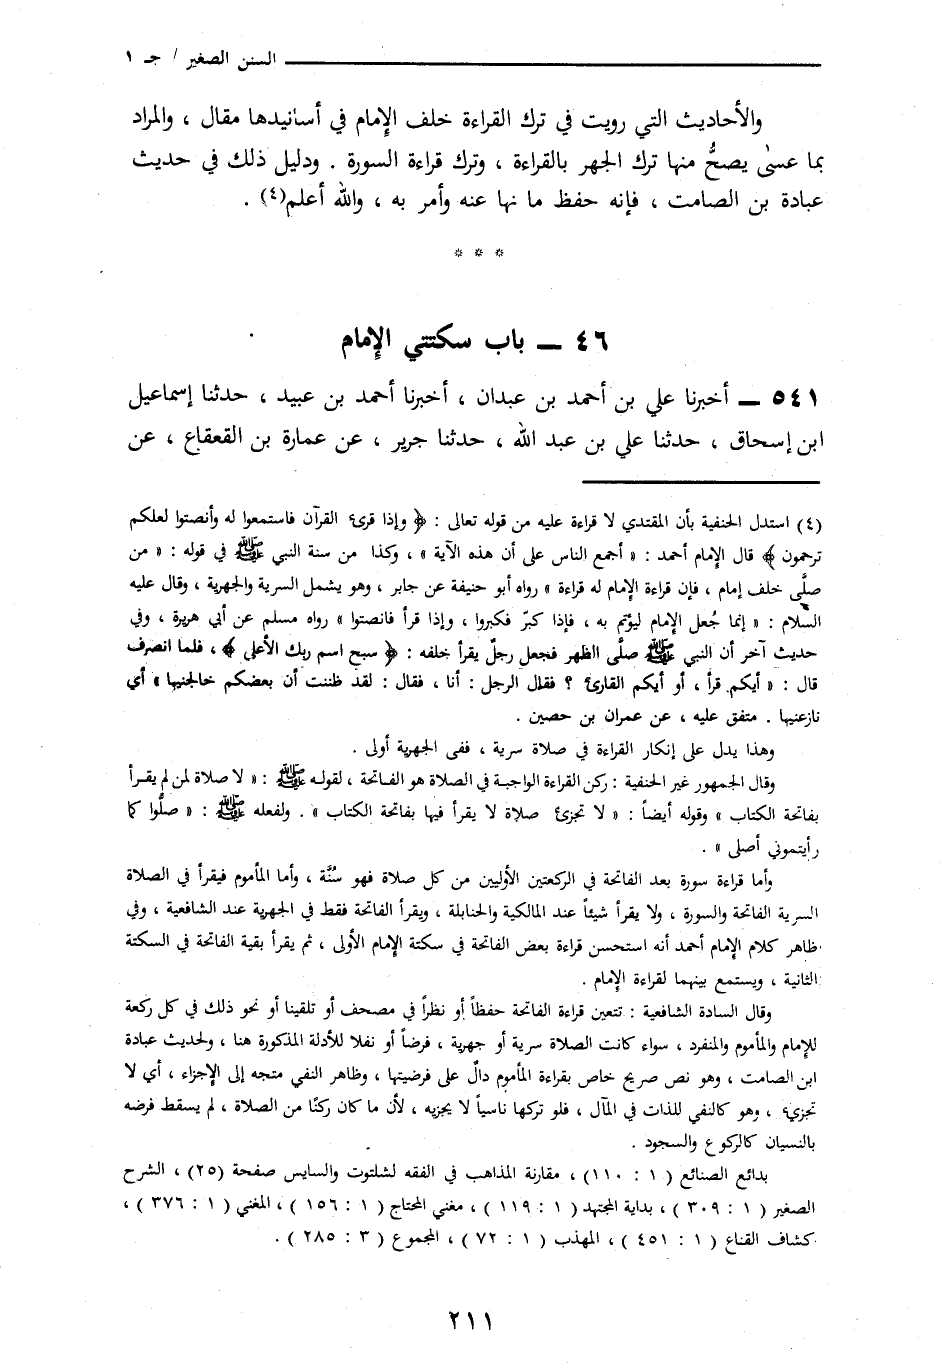 السنن الصغير / جـ ١
والأحاديث التي رويت في ترك القراءة خلف الإمام في أسانيدها مقال ، والمراد
بما عسىٰ يصحُّ منها ترك الجهر بالقراءة ، وترك قراءة السورة . ودليل ذلك في حديث
عبادة بن الصامت ، فإنه حفظ ما نها عنه وأمر به ، والله أعلم(٤) .
* * *
٤٦ ـ باب سكتتي الإمام
٥٤١ ـ أخبرنا علي بن أحمد بن عبدان ، أخبرنا أحمد بن عبيد ، حدثنا إسماعيل
ابن إسحاق ، حدثنا علي بن عبد الله ، حدثنا جرير ، عن عمارة بن القعقاع ، عن
(٤) استدل الحنفية بأن المقتدي لا قراءة عليه من قوله تعالى : ﴿ وإذا قرىء القرآن فاستمعوا له وأنصتوا لعلكم
ترحمون ﴾ قال الإمام أحمد : « أجمع الناس على أن هذه الآية » ، وكذا من سنة النبي ﷺ في قوله : « من
صلَّى خلف إمام ، فإن قراءة الإمام له قراءة » رواه أبو حنيفة عن جابر ، وهو يشمل السرية والجهرية ، وقال عليه
السلام : « إنما جُعل الإمام ليؤتم به ، فإذا كبرّ فكبروا ، وإذا قرأ فانصتوا » رواه مسلم عن أبي هريرة ، وفي
حديث آخر أن النبي ﷺ صلَّى الظهر فجعل رجلٌ يقرأ خلفه : ﴿ سبح اسم ربك الأعلى ﴾ ، فلما انصرف
قال : « أيكم قرأ ، أو أيكم القارئ ؟ فقال الرجل : أنا ، فقال : لقد ظننت أن بعضكم خالجنيها » أي
نازعنيها . متفق عليه ، عن عمران بن حصين .
وهذا يدل على إنكار القراءة في صلاة سرية ، ففى الجهرية أولى .
وقال الجمهور غير الحنفية : ركن القراءة الواجبة في الصلاة هو الفاتحة ، لقوله ﷺ : « لا صلاة لمن لم يقرأ
بفاتحة الكتاب » وقوله أيضاً : « لا تجزئ صلاة لا يقرأ فيها بفاتحة الكتاب » . ولفعله ﷺ : « صلُّوا كما
رأيتموني أصلى » .
وأما قراءة سورة بعد الفاتحة في الركعتين الأوليين من كل صلاة فهو سُنَّة ، وأما المأموم فيقرأ في الصلاة
السرية الفاتحة والسورة ، ولا يقرأ شيئاً عند المالكية والحنابلة ، ويقرأ الفاتحة فقط في الجهرية عند الشافعية ، وفي
ظاهر كلام الإمام أحمد أنه استحسن قراءة بعض الفاتحة في سكتة الإمام الأولى ، ثم يقرأ بقية الفاتحة في السكتة
الثانية ، ويستمع بينهما لقراءة الإمام .
وقال السادة الشافعية : تتعين قراءة الفاتحة حفظاً أو نظراً في مصحف أو تلقينا أو نحو ذلك في كل ركعة
للإمام والمأموم والمنفرد ، سواء كانت الصلاة سرية أو جهرية ، فرضاً أو نفلا للأدلة المذكورة هنا ، ولحديث عبادة
ابن الصامت ، وهو نص صريح خاص بقراءة المأموم دالٌ على فرضيتها ، وظاهر النفي متجه إلى الإجزاء ، أي لا
تجزيء ، وهو كالنفي للذات في المآل ، فلو تركها ناسياً لا يجزيه ، لأن ما كان ركنًا من الصلاة ، لم يسقط فرضه
بالنسيان كالركوع والسجود .
بدائع الصنائع ( ١ : ١١٠) ، مقارنة المذاهب في الفقه لشلتوت والسايس صفحة (٢٥) ، الشرح
الصغير ( ١ : ٣٠٩ ) ، بداية المجتهد ( ١ : ١١٩ ) ، مغني المحتاج ( ١ : ١٥٦ ) ، المغني ( ١ : ٣٧٦ ) ،
كشاف القناع ( ١ : ٤٥١ ) ، المهذب ( ١ : ٧٢ ) ، المجموع ( ٣ : ٢٨٥ ) .
٢١١